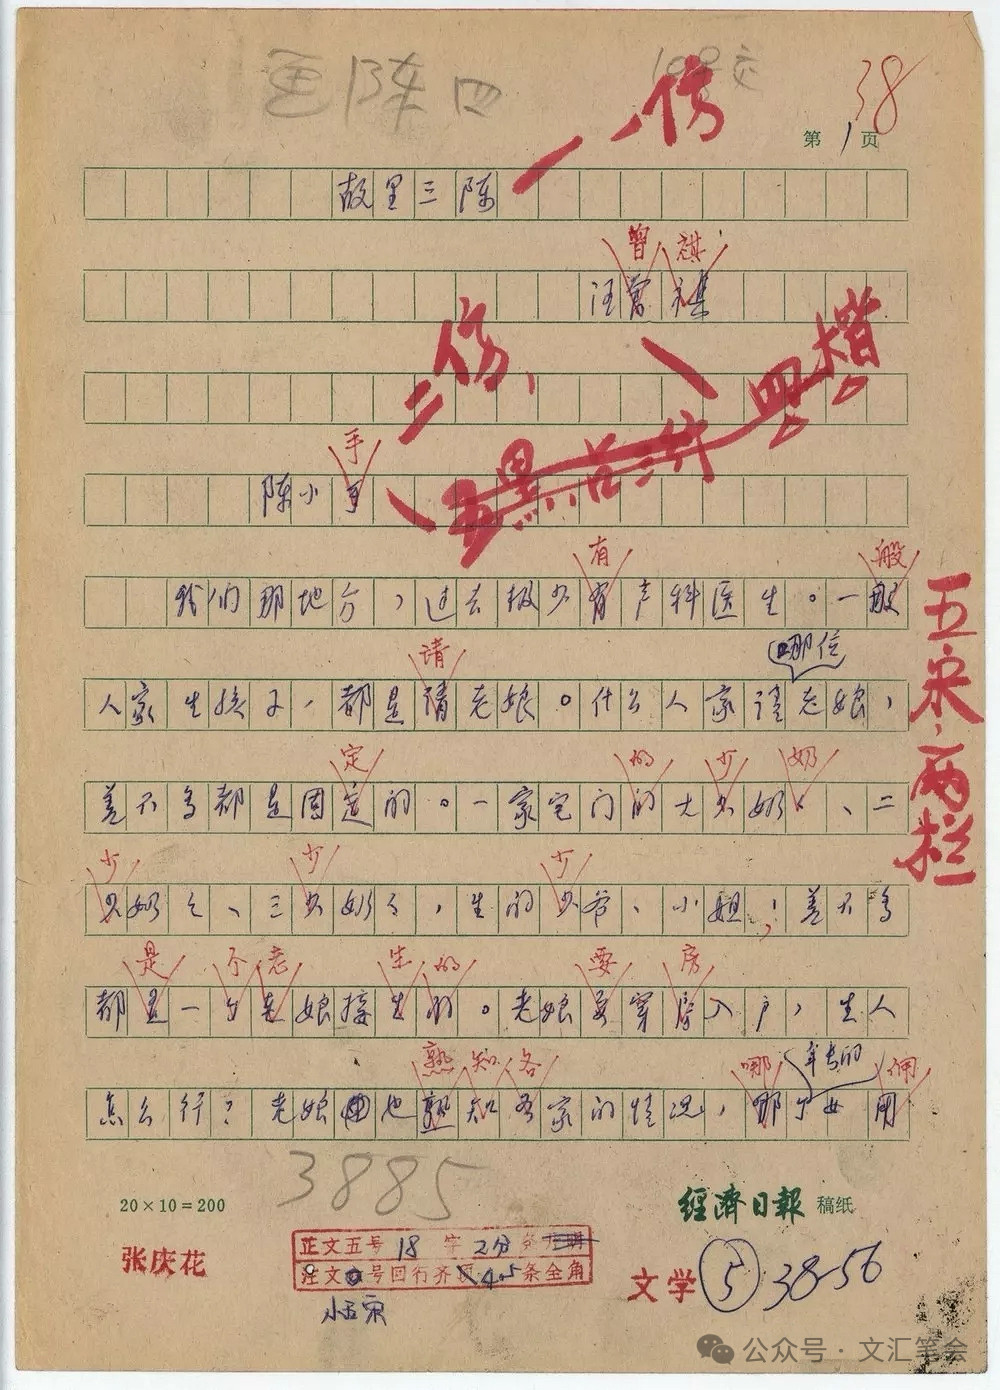 色陈四
38
第1页
一仿
故里三陈
曾祺
汪曾祺
二仿、
四楷
五黑
手
陈小手
有 般
我们那地方，过去极少有产科医生。一般
请 哪位
人家生孩子，都是请老娘。什么人家请哪位老娘，
定 的 少 奶
差不多都是固定的。一家宅门的大少奶奶、二
少 少 少
少奶奶、三少奶奶，生的少爷、小姐，差不多
是 个老 生的 要 房
都是一个老娘接生的。老娘要穿房入户，生人
熟知各 哪 年长的 佣
怎么行？老娘也熟知各家的情况，哪个年长的女佣
五宋，两栏
3885
20×10=200
經濟日報 稿纸
张庆花
正文五号18字2分条
注文号回行齐项4.5条全角
小五宋
文学⑤38-56
公众号·文汇笔会